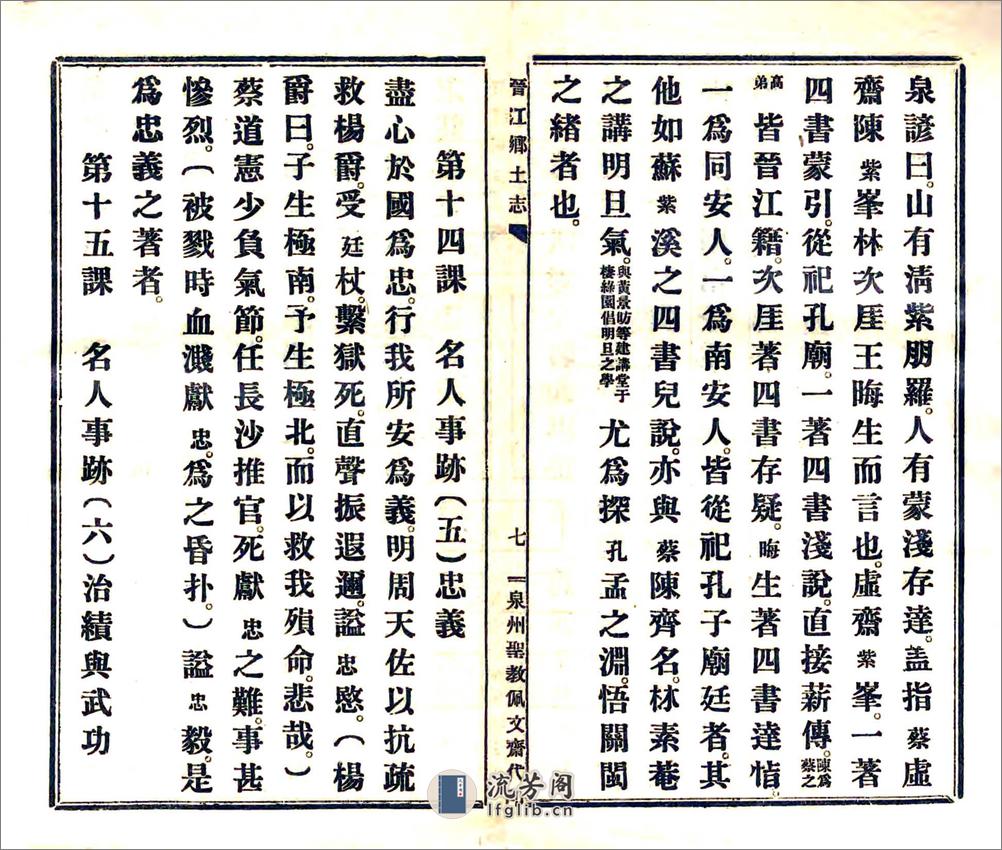 泉諺曰。山有清紫朋羅。人有蒙淺存達。盖指蔡虛
齋陳紫峯林次厓王晦生而言也。虛齋紫峯。一著
四書蒙引。從祀孔廟。一著四書淺說。直接薪傳。陳爲蔡之
高弟皆晉江籍。次厓著四書存疑。晦生著四書達恉。
一爲同安人。一爲南安人。皆從祀孔子廟廷者。其
他如蘇紫溪之四書兒說。亦與蔡陳齊名。林素菴
之講明旦氣。與黃景昉等建講堂于棲綠園倡明旦之學尤爲探孔孟之淵。悟關閩
之緒者也。
晉江鄉土志 七 泉州聖教佩文齋代
第十四課 名人事跡(五)忠義
盡心於國爲忠。行我所安爲義。明周天佐以抗疏
救楊爵。受廷杖。繫獄死。直聲振遐邇。謚忠愍。(楊
爵曰。子生極南。予生極北。而以救我殞命。悲哉。)
蔡道憲少負氣節。任長沙推官。死獻忠之難。事甚
慘烈。(被戮時血濺獻忠。爲之昏扑。)謚忠毅。是
爲忠義之著者。
第十五課 名人事跡(六)治績與武功
流芳阁
lfglib.cn